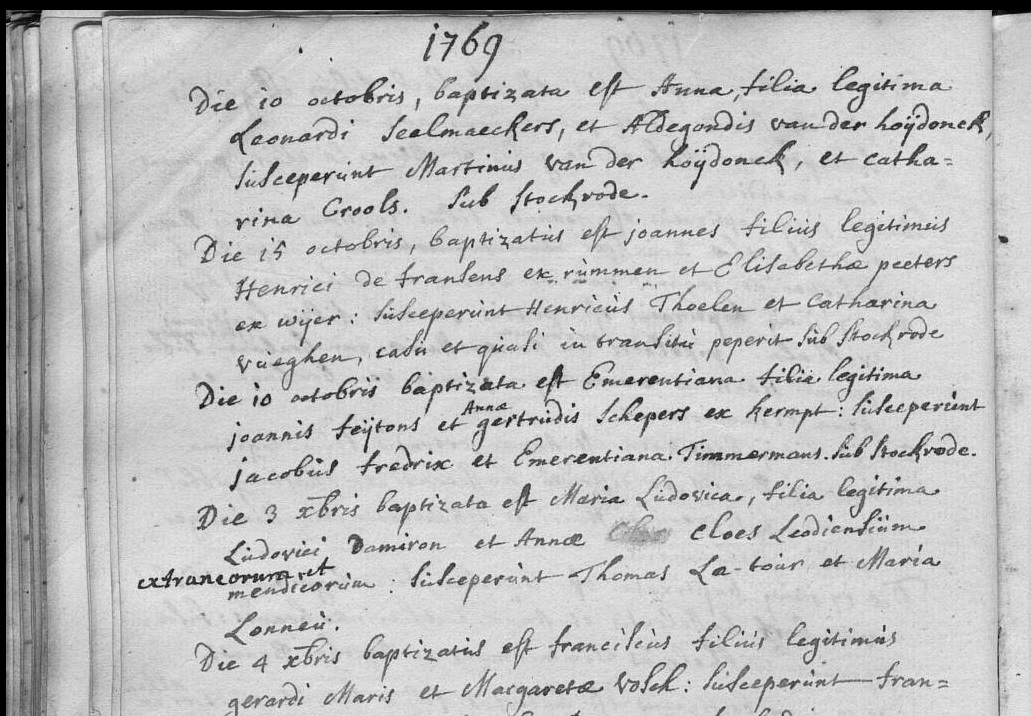 1769
Die 10 octobris, baptizata est Anna, filia legitima
Leonardi Seelmaeckers, et Aldegondis van der hoÿdonck,
susceperunt Martinus van der hoÿdonck, et catha=
rina Crools. sub stockrode.
Die 15 octobris, baptizatus est joannes filius legitimus
Henrici de fransens ex rummen et Elisabethæ peeters
ex wijer: susceperunt Henricus Thoelen et Catharina
vueghen, casu et quasi in transitu peperit sub stockrode
Die 10 octobris baptizata est Emerentiana filia legitima
Annæ
joannis feÿtons et gertrudis schepers ex kermpt: susceperunt
jacobus fredrix et Emerentiana Timmermans. sub stockrode.
Die 3 xbris baptizata est Maria Ludovica, filia legitima
Ludovici Damiron et Annæ Cloes Leodiensium
extraneorum et
mendicorum: susceperunt Thomas La-tour et Maria
Lonneu.
Die 4 xbris baptizatus est franciscus filius legitimus
gerardi Maris et Margaretæ vosch: susceperunt fran=